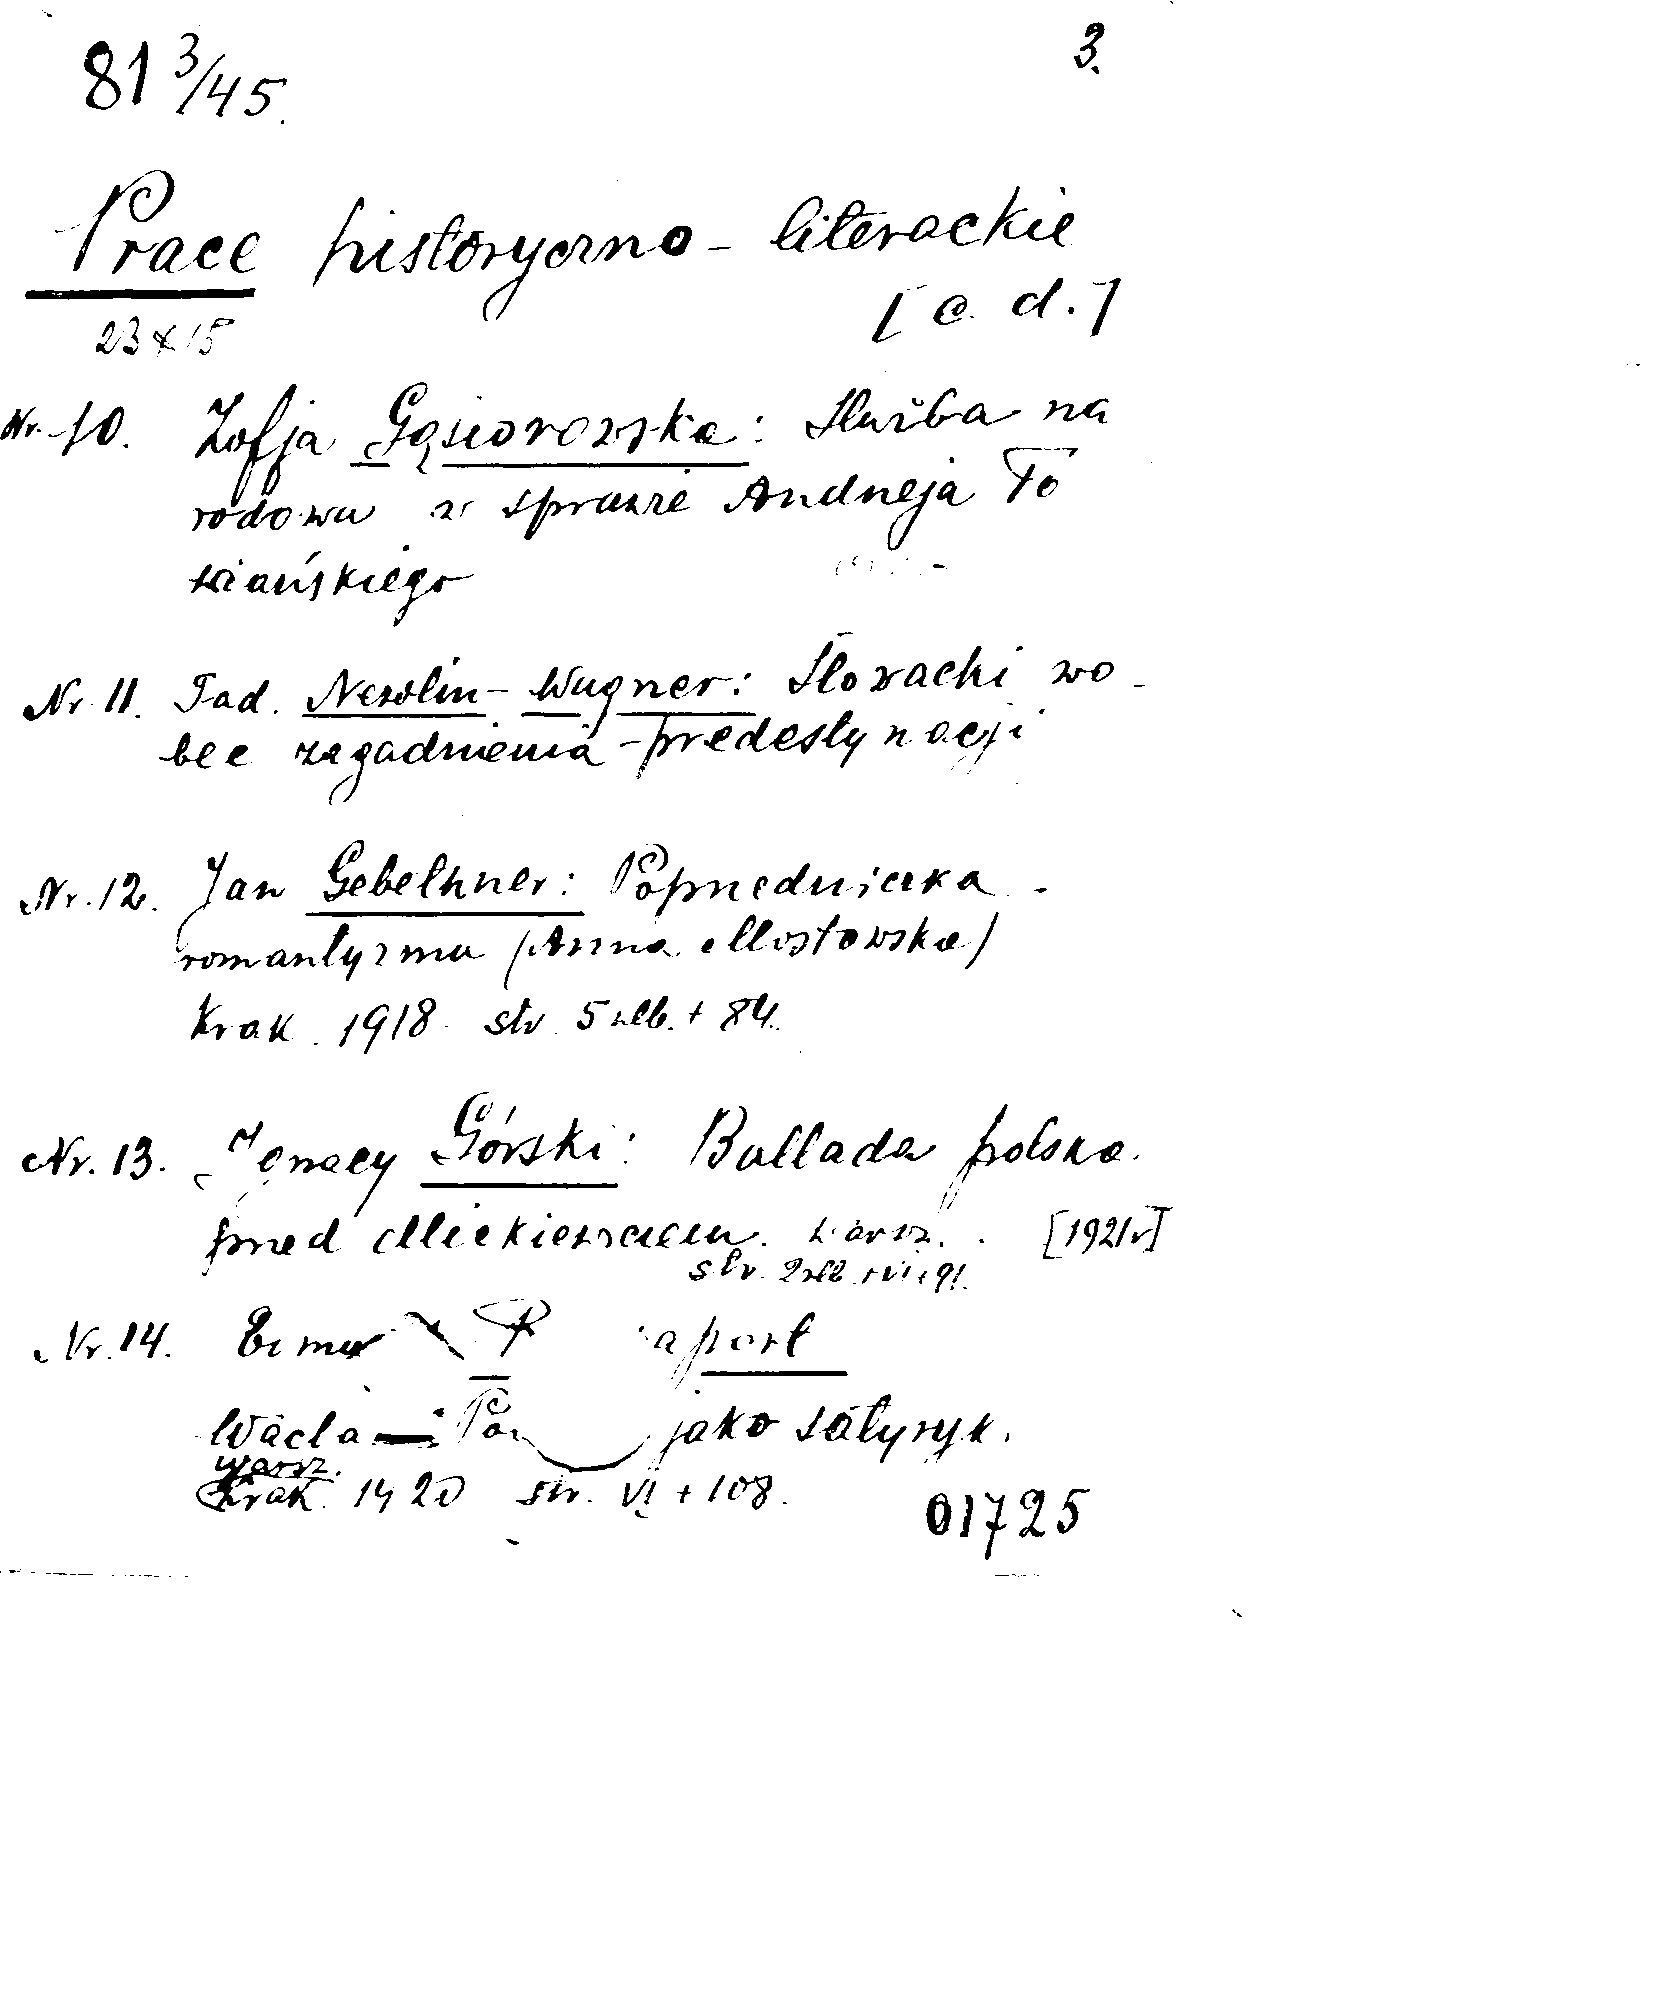 81 3/45.
3.
Prace historyczno-literackie
[c. d.]
23 x 15
Nr. 10. Zofja Gąsiorowska: Służba na
rodowa w sprawie Andrzeja To
wiańskiego
Nr. 11. Tad. Newlin-Wagner: Słowacki wo-
bec zagadnienia predestynacji
Nr. 12. Jan Gebethner: Poprzedniczka
romantyzmu (Anna Mostowska)
Krak. 1918. str. 5 nlb. + 84.
Nr. 13. Ignacy Górski: Ballada polska
przed Mickiewiczem. Warsz. [1921 r]
str. 2 nlb. + VI + 91.
Nr. 14. aport
Wacła Po jako satyryk.
Warsz.
Krak. 1920 str. VI + 108.
01725